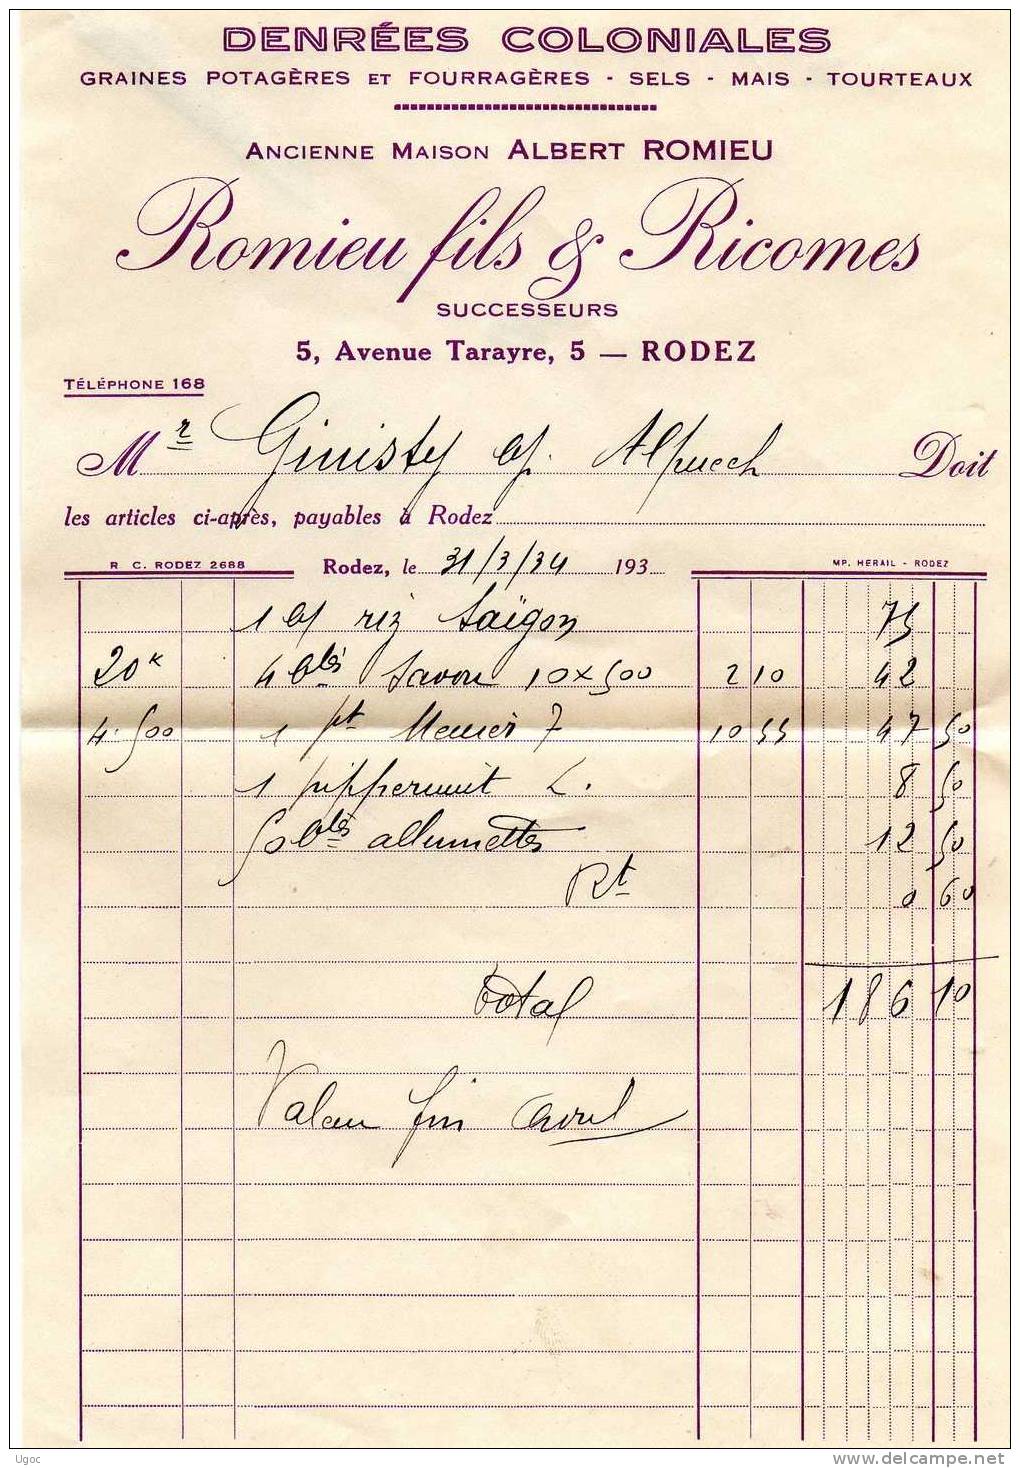 DENRÉES COLONIALES
GRAINES POTAGÈRES ET FOURRAGÈRES - SELS - MAIS - TOURTEAUX
ANCIENNE MAISON ALBERT ROMIEU
Romieu fils & Ricomes
SUCCESSEURS
5, Avenue Tarayre, 5 — RODEZ
TÉLÉPHONE 168
Mr Ginisty Alpuech Doit
les articles ci-après, payables à Rodez
R C. RODEZ 2688 Rodez, le 31/3/34 193 MP. HERAIL - RODEZ
1 riz Saïgon 75
20k 4 bles Savon 10 x 500 2 10 42
4.500 1 pt Menier 7 10 55 47 50
1 pippermint L. 8 50
50 bles allumettes 12 50
Rt 0 60
total 186 10
Valeur fin avril
Ugoc
www.delcampe.net